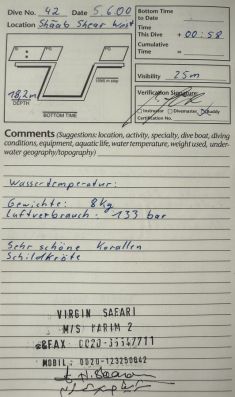 Dive No. 42 Date 5.6.00
Location Shaab Shear West
Bottom Time to Date
Time This Dive + 00:58
Cumulative Time =
SI PG PG
18,2m
DEPTH
BOTTOM TIME
Visibility 25m
Verification Signature
Instructor Divemaster Buddy
Certification No.
Comments (Suggestions: location, activity, specialty, dive boat, diving
conditions, equipment, aquatic life, water temperature, weight used, under-
water geography/topography)
Wassertemperatur:
Gewichte: 8kg
Luftverbrauch: 133 bar
Sehr schöne Korallen
Schildkröte
VIRGIN SAFARI
M/S KARIM 2
&FAX 0020-
MOBIL: 0020-123250042